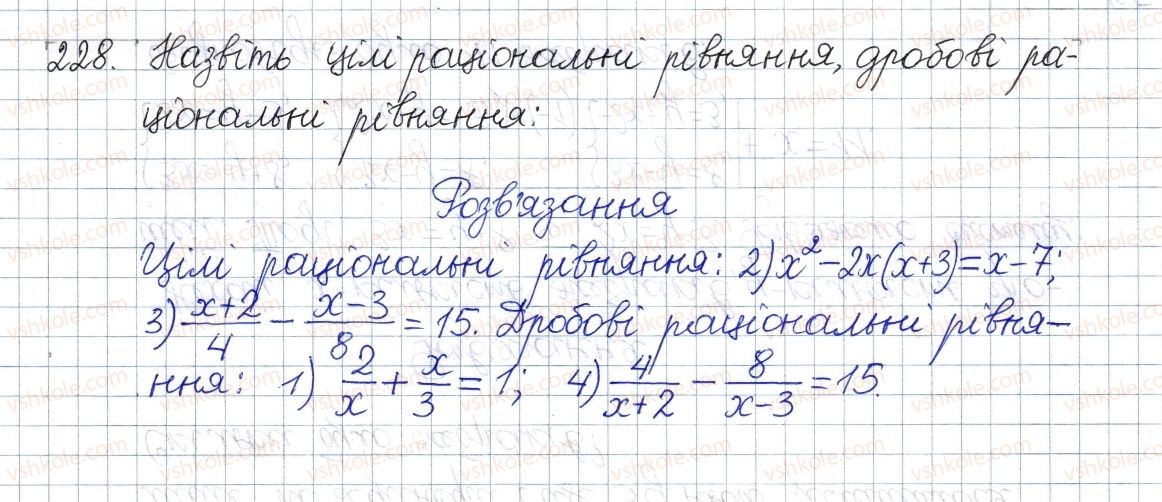 228. Назвіть цілі раціональні рівняння, дробові ра-
ціональні рівняння:
Розв'язання
Цілі раціональні рівняння: 2) x² - 2x(x+3) = x - 7;
3) (x+2)/4 - (x-3)/8 = 15. Дробові раціональні рівня-
ння: 1) 2/x + x/3 = 1; 4) 4/(x+2) - 8/(x-3) = 15.